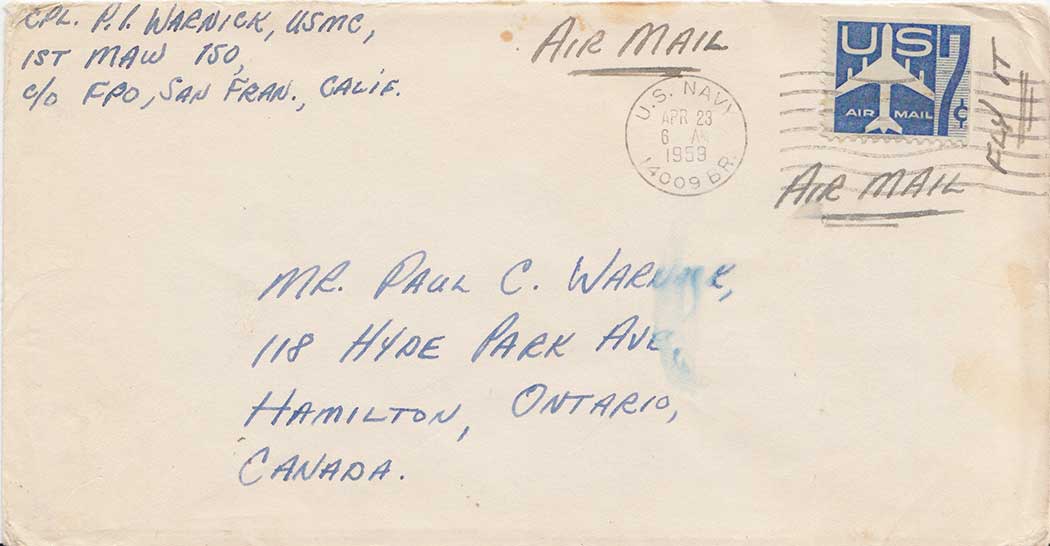 CPL. P. I. WARNICK, USMC,
1ST MAW 150,
c/o FPO, SAN FRAN., CALIF.
AIR MAIL
U.S. NAVY
APR 23
6 AM
1959
14009 BR.
US 7¢
AIR MAIL
FLY IT
AIR MAIL
MR. PAUL C. WARNICK,
118 HYDE PARK AVE,
HAMILTON, ONTARIO,
CANADA.